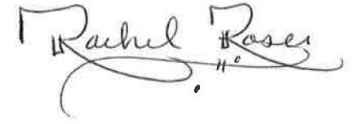 Rachel Roser